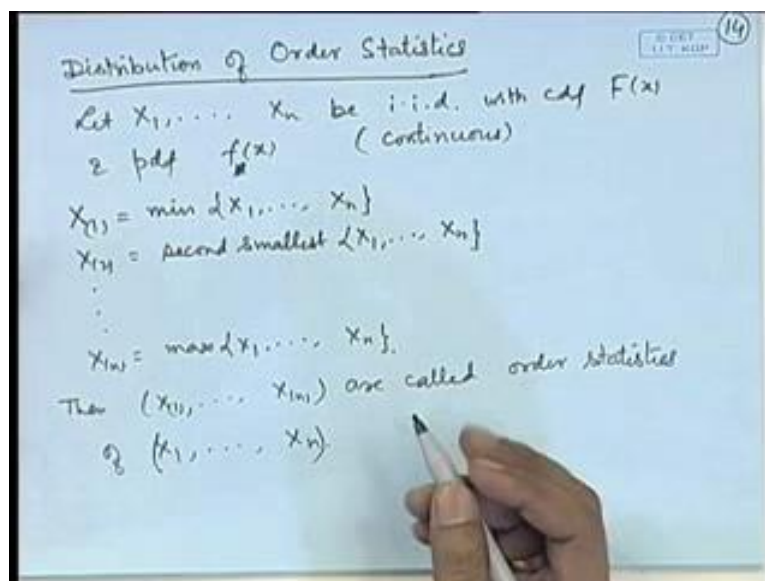 Distribution of Order Statistics
14
© CET
I.I.T. KGP
Let X₁, .... Xₙ be i.i.d. with cdf F(x)
& pdf f(x) (continuous)
X₍₁₎ = min {X₁, ..., Xₙ}
X₍₂₎ = second smallest {X₁, ..., Xₙ}
.
.
.
X₍ₙ₎ = max {X₁, ...., Xₙ}.
Then (X₍₁₎, ..., X₍ₙ₎) are called order statistics
of (X₁, ..., Xₙ).